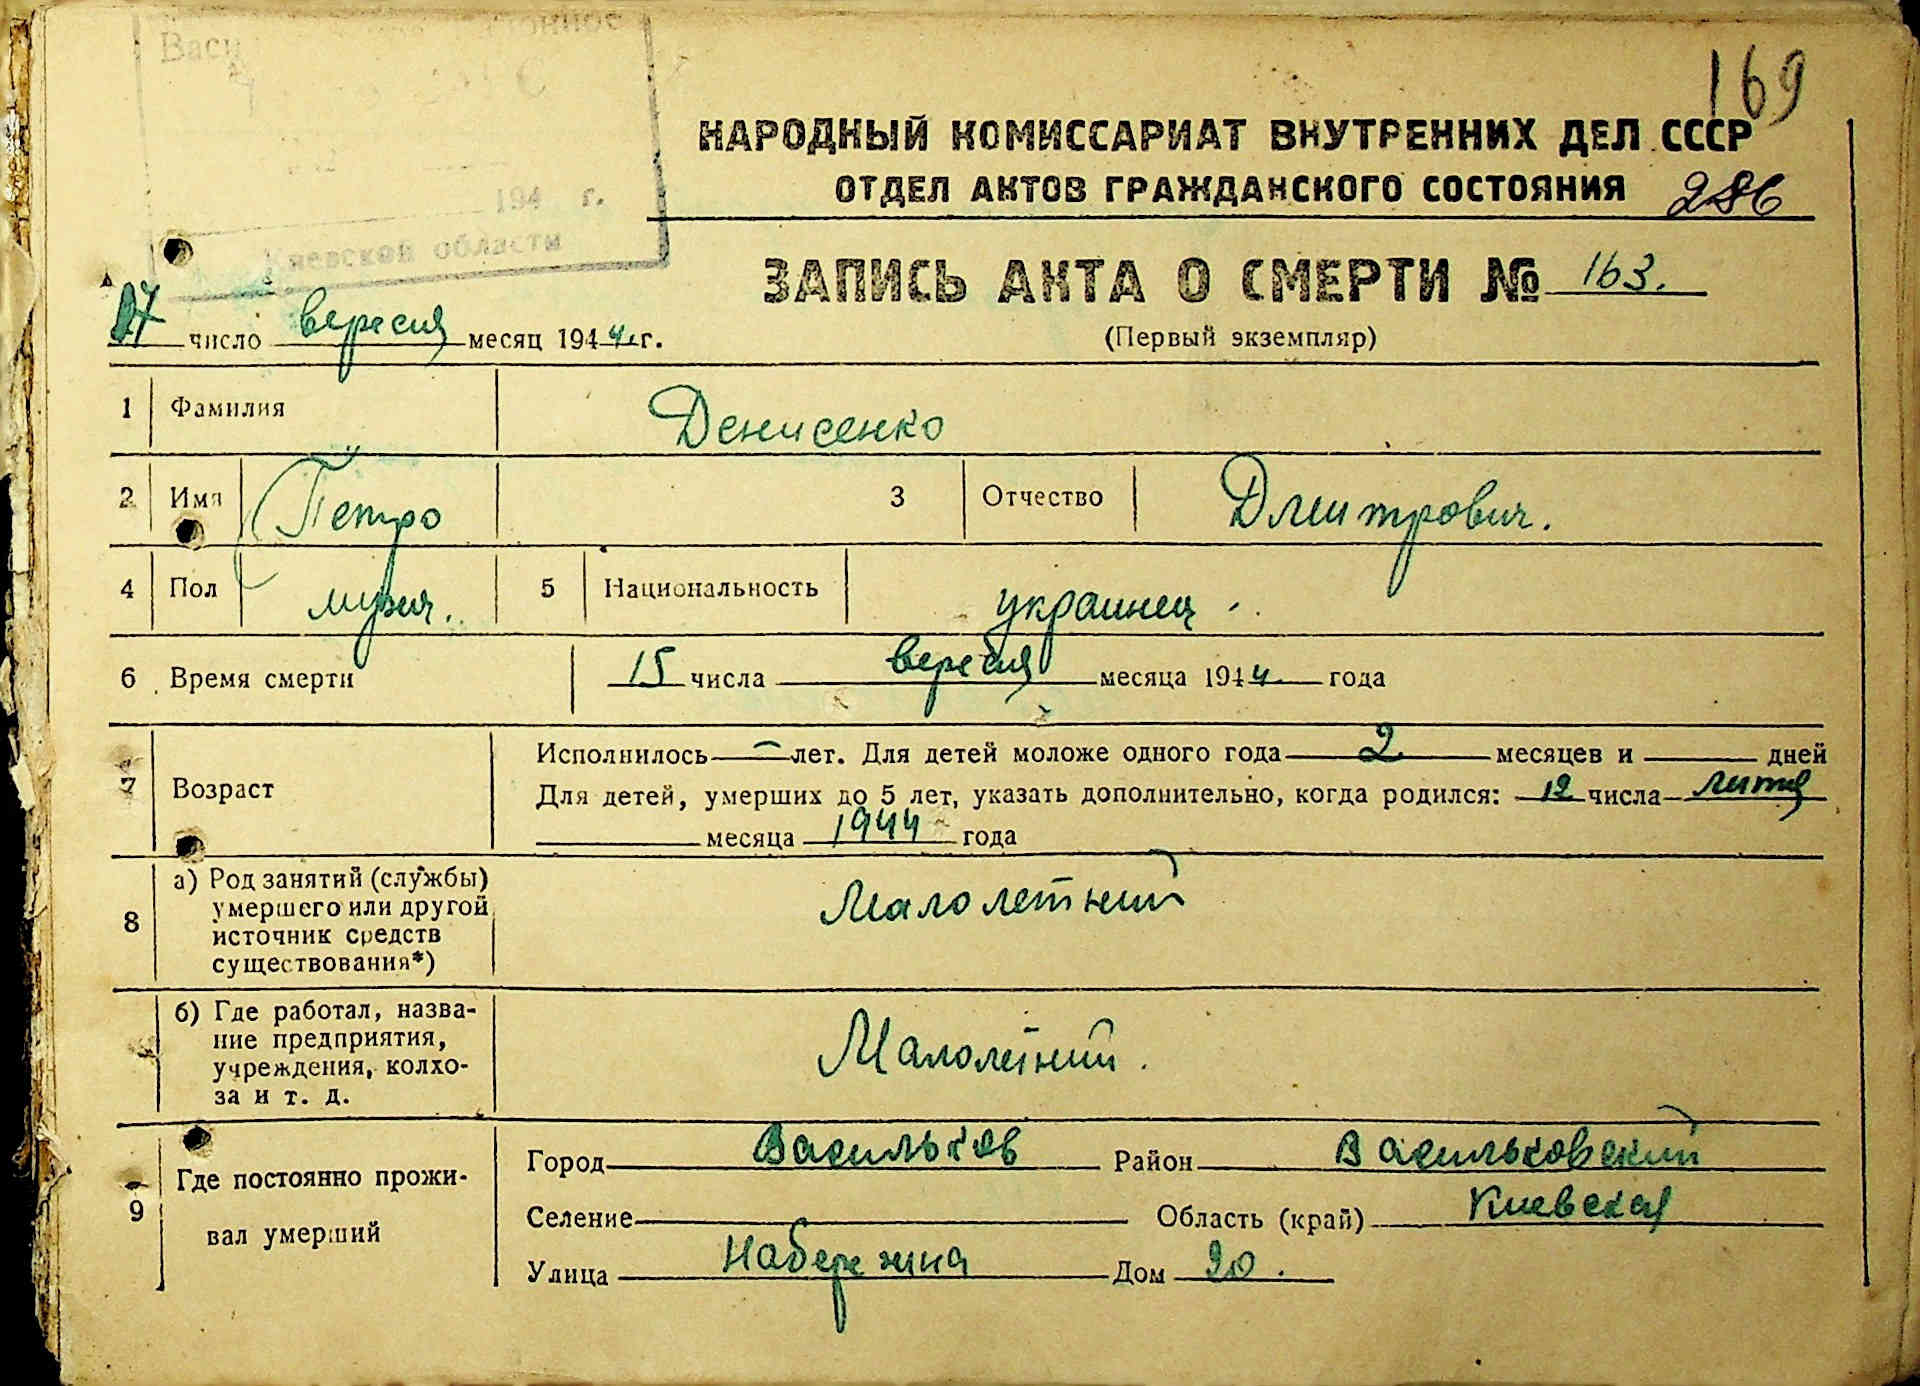 169
Васи
194 г.
Киевской области
НАРОДНЫЙ КОМИССАРИАТ ВНУТРЕННИХ ДЕЛ СССР
ОТДЕЛ АКТОВ ГРАЖДАНСКОГО СОСТОЯНИЯ 286
ЗАПИСЬ АКТА О СМЕРТИ № 163.
(Первый экземпляр)
17 число вересня месяц 1944 г.
1 Фамилия Денисенко
2 Имя Петро 3 Отчество Дмитрович.
4 Пол мужч. 5 Национальность украинец
6 Время смерти 15 числа вересня месяца 1944 года
7 Возраст Исполнилось — лет. Для детей моложе одного года 2 месяцев и дней
Для детей, умерших до 5 лет, указать дополнительно, когда родился: 12 числа липня
месяца 1944 года
8 а) Род занятий (службы)
умершего или другой
источник средств
существования*)
Малолетний
б) Где работал, назва-
ние предприятия,
учреждения, колхо-
за и т. д.
Малолетний.
9 Где постоянно прожи-
вал умерший
Город Васильков Район Васильковский
Селение Область (край) Киевская
Улица Набережна Дом 20.